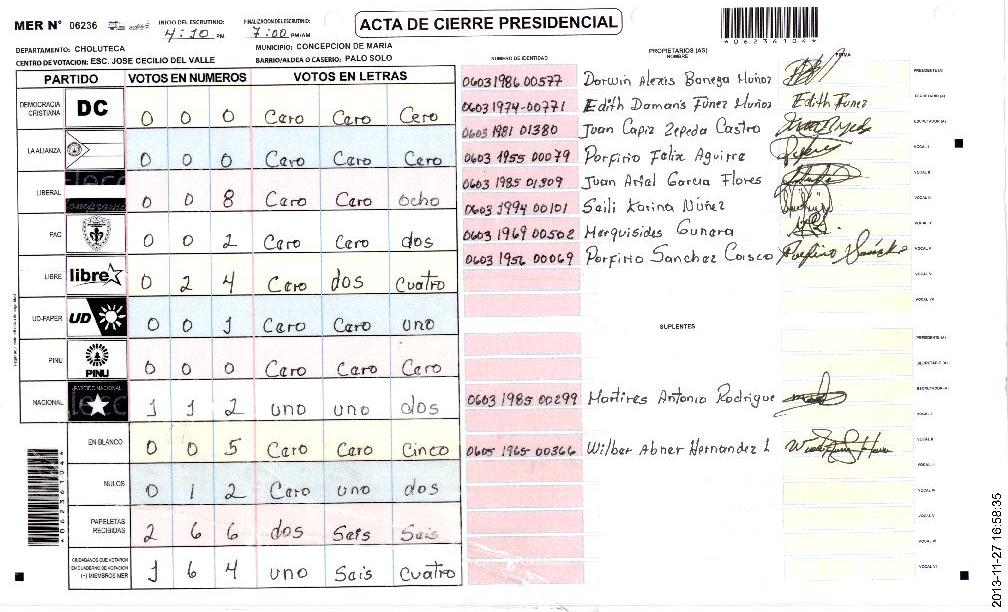 MER Nº 06236
INICIO DEL ESCRUTINIO:
4:10 PM
FINALIZACION DEL ESCRUTINIO:
7:00 PM/AM
ACTA DE CIERRE PRESIDENCIAL
*06236104*
DEPARTAMENTO: CHOLUTECA
MUNICIPIO: CONCEPCION DE MARIA
CENTRO DE VOTACION: ESC. JOSE CECILIO DEL VALLE
BARRIO/ALDEA O CASERIO: PALO SOLO
PARTIDO VOTOS EN NUMEROS VOTOS EN LETRAS
DEMOCRACIA CRISTIANA DC 0 0 0 Caro Caro Cero
LA ALIANZA 0 0 0 Caro Caro Cero
LIBERAL 0 0 8 Caro Caro ocho
PAC 0 0 2 Caro Caro dos
LIBRE libre 0 2 4 Caro dos cuatro
UD-FAPER UD 0 0 1 Caro Caro uno
PINU PINU 0 0 0 Caro Caro Caro
NACIONAL PARTIDO NACIONAL 1 1 2 uno uno dos
EN BLANCO 0 0 5 Caro Caro Cinco
NULOS 0 1 2 Caro uno dos
PAPELETAS RECIBIDAS 2 6 6 dos Sais Sais
CIUDADANOS QUE VOTARON EN CUADERNO DE VOTACION (+) MIEMBROS MER 1 6 4 uno Sais Cuatro
NUMERO DE IDENTIDAD
PROPIETARIOS (AS)
NOMBRE
FIRMA
0603 1986 00577 Dorwin Alexis Banega Muñoz PRESIDENTE(A)
0603 1974-00771 Edith Damaris Funez Muñoz Edith Funez SECRETARIO(A)
0603 1981 01380 Juan Capiz Zepeda Castro ESCRUTADOR(A)
0603 1955 00079 Porfirio Felix Aguirre VOCAL I
0603 1985 01309 Juan Arial Garcia Flores VOCAL II
0603 1994 00101 Saili Karina Núñez VOCAL III
0603 1969 00502 Merquisides Gunera VOCAL IV
0603 1956 00069 Porfirio Sanchez Caisco Porfirio Sánchez VOCAL V
VOCAL VI
VOCAL VII
SUPLENTES
PRESIDENTE(A)
SECRETARIO(A)
0603 1985 00299 Martires Antonio Rodrigue ESCRUTADOR(A)
VOCAL I
0605 1965 00366 Wilber Abner Hernandez L VOCAL II
VOCAL III
VOCAL IV
VOCAL V
VOCAL VI
VOCAL VII
*06236104*
2013-11-27 16:58:35